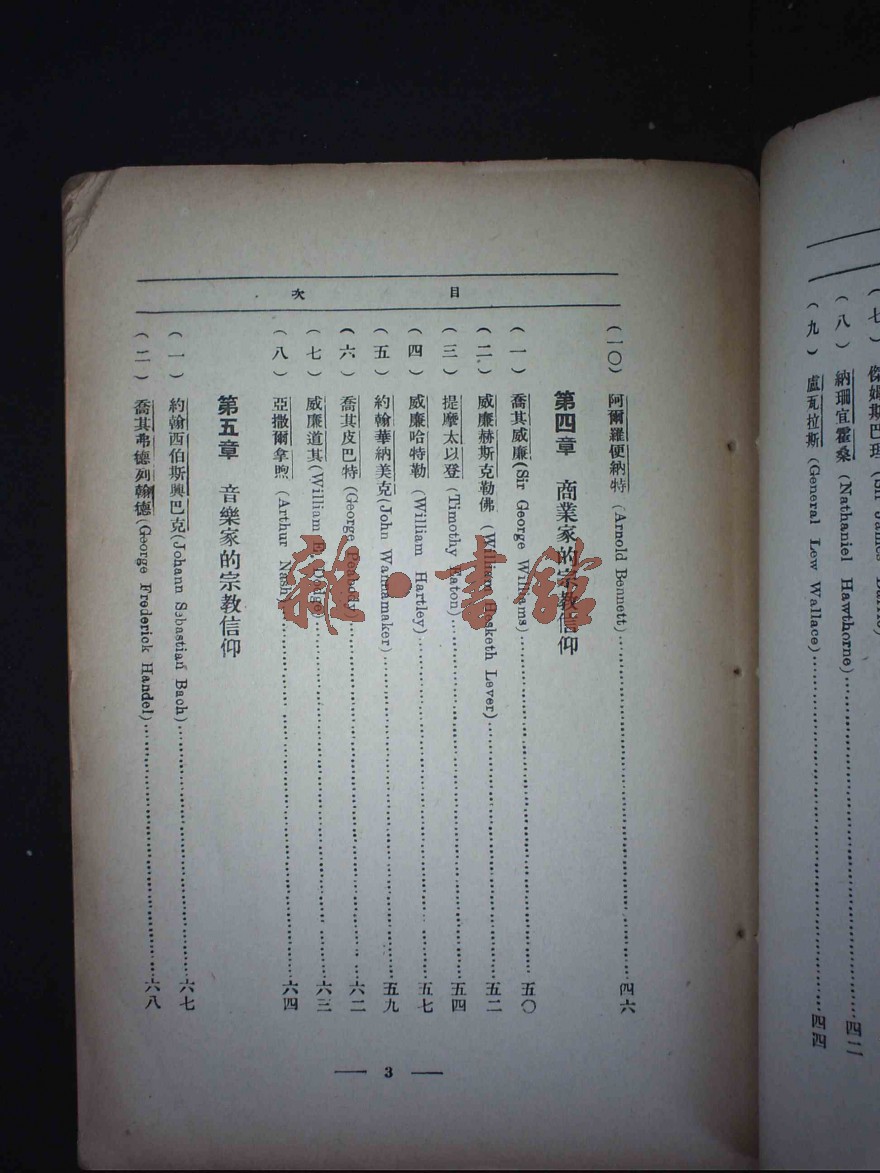 傑姆斯巴理(Sir James Barrie)
(八) 納珊宜霍桑 (Nathaniel Hawthorne)……四二
(九) 盧瓦拉斯 (General Lew Wallace)……四四
目次
(一〇) 阿爾羅便納特 (Arnold Bennett)……四六
第四章 商業家的宗教信仰
(一) 喬其威廉(Sir George Williams)……五〇
(二) 威廉赫斯克勒佛 (William Hesketh Lever)……五二
(三) 提摩太以登 (Timothy Eaton)……五四
(四) 威廉哈特勒 (William Hartley)……五七
(五) 約翰華納美克(John Wannamaker)……五九
(六) 喬其皮巴特 (George Peabody)……六二
(七) 威廉道其(William E. Dodge)……六三
(八) 亞撒爾拿煦 (Arthur Nash)……六四
第五章 音樂家的宗教信仰
(一) 約翰西伯斯興巴克(Johann Sebastian Bach)……六七
(二) 喬其弗德列翰德(George Frederick Handel)……六八
— 3 —
雜·書館